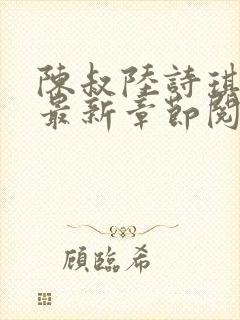 陳叔陸詩琪
最新章節閱
顧臨希